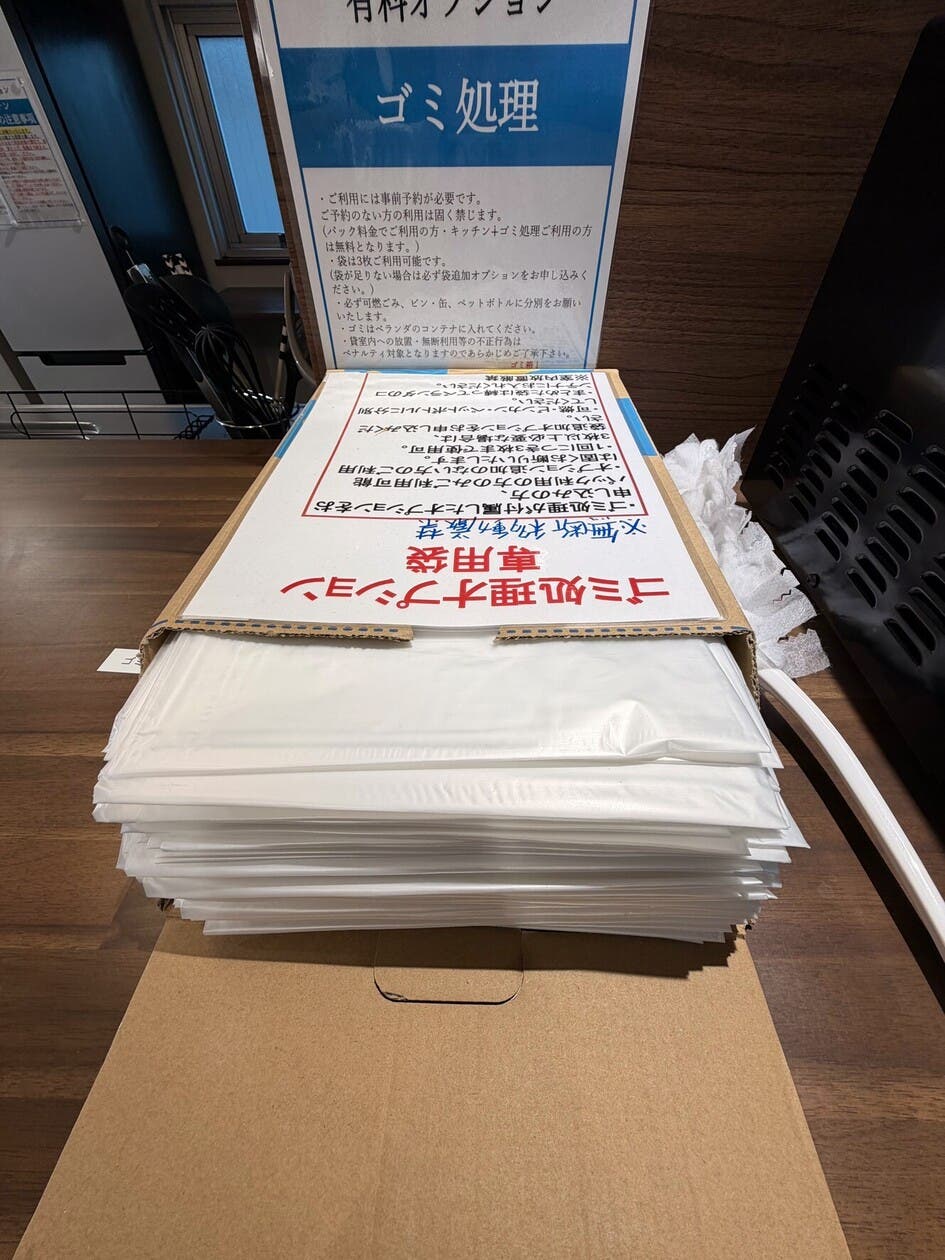 有料オプション
ゴミ処理
・ご利用には事前予約が必要です。
ご予約のない方の利用は固く禁じます。
(パック料金でご利用の方・キッチン+ゴミ処理ご利用の方
は無料となります。)
・袋は3枚ご利用可能です。
(袋が足りない場合は必ず袋追加オプションをお申し込みく
ださい。)
・必ず可燃ごみ、ビン・缶、ペットボトルに分別をお願い
いたします。
・ゴミはベランダのコンテナに入れてください。
・貸室内への放置・無断利用等の不正行為は
ペナルティ対象となりますのであらかじめご了承下さい。
ゴミ処理オプション
専用袋
※無断移動厳禁
・ゴミ処理が付属したオプションをお
申し込みの方、
パック利用の方のみご利用可能
・オプション追加のない方のご利用
は固くお断りいたします。
1回につき3枚まで使用可。
3枚以上必要な場合は、
袋追加オプションをお申し込みくだ
さい。
・可燃・ビンカン・ペットボトルに分別
してください。
・まとめた袋は縛ってベランダのコ
ンテナにお入れください。
※室内放置厳禁
の注意事項